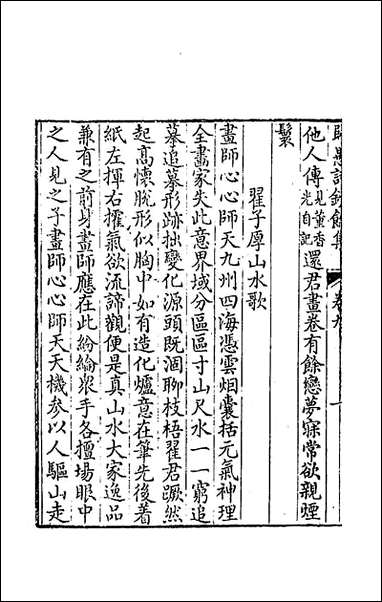 歸愚詩鈔餘集 卷九
他人傳見董香光自記還君畫卷有餘戀夢寐常欲親煙
鬟
翟子厚山水歌
畫師心心師天九州四海憑雲烟囊括元氣神理
全畫家失此意界域分區區寸山尺水一一窮追
摹追摹形跡拙變化源頭既涸聊枝梧翟君蹶然
起高懷脫形似胸中如有造化爐意在筆先後着
紙左揮右擢氣欲流諦觀便是真山水大家逸品
兼有之前身畫師應在此紛綸衆手各擅場眼中
之人見之子畫師心心師天天機參以人驅山走